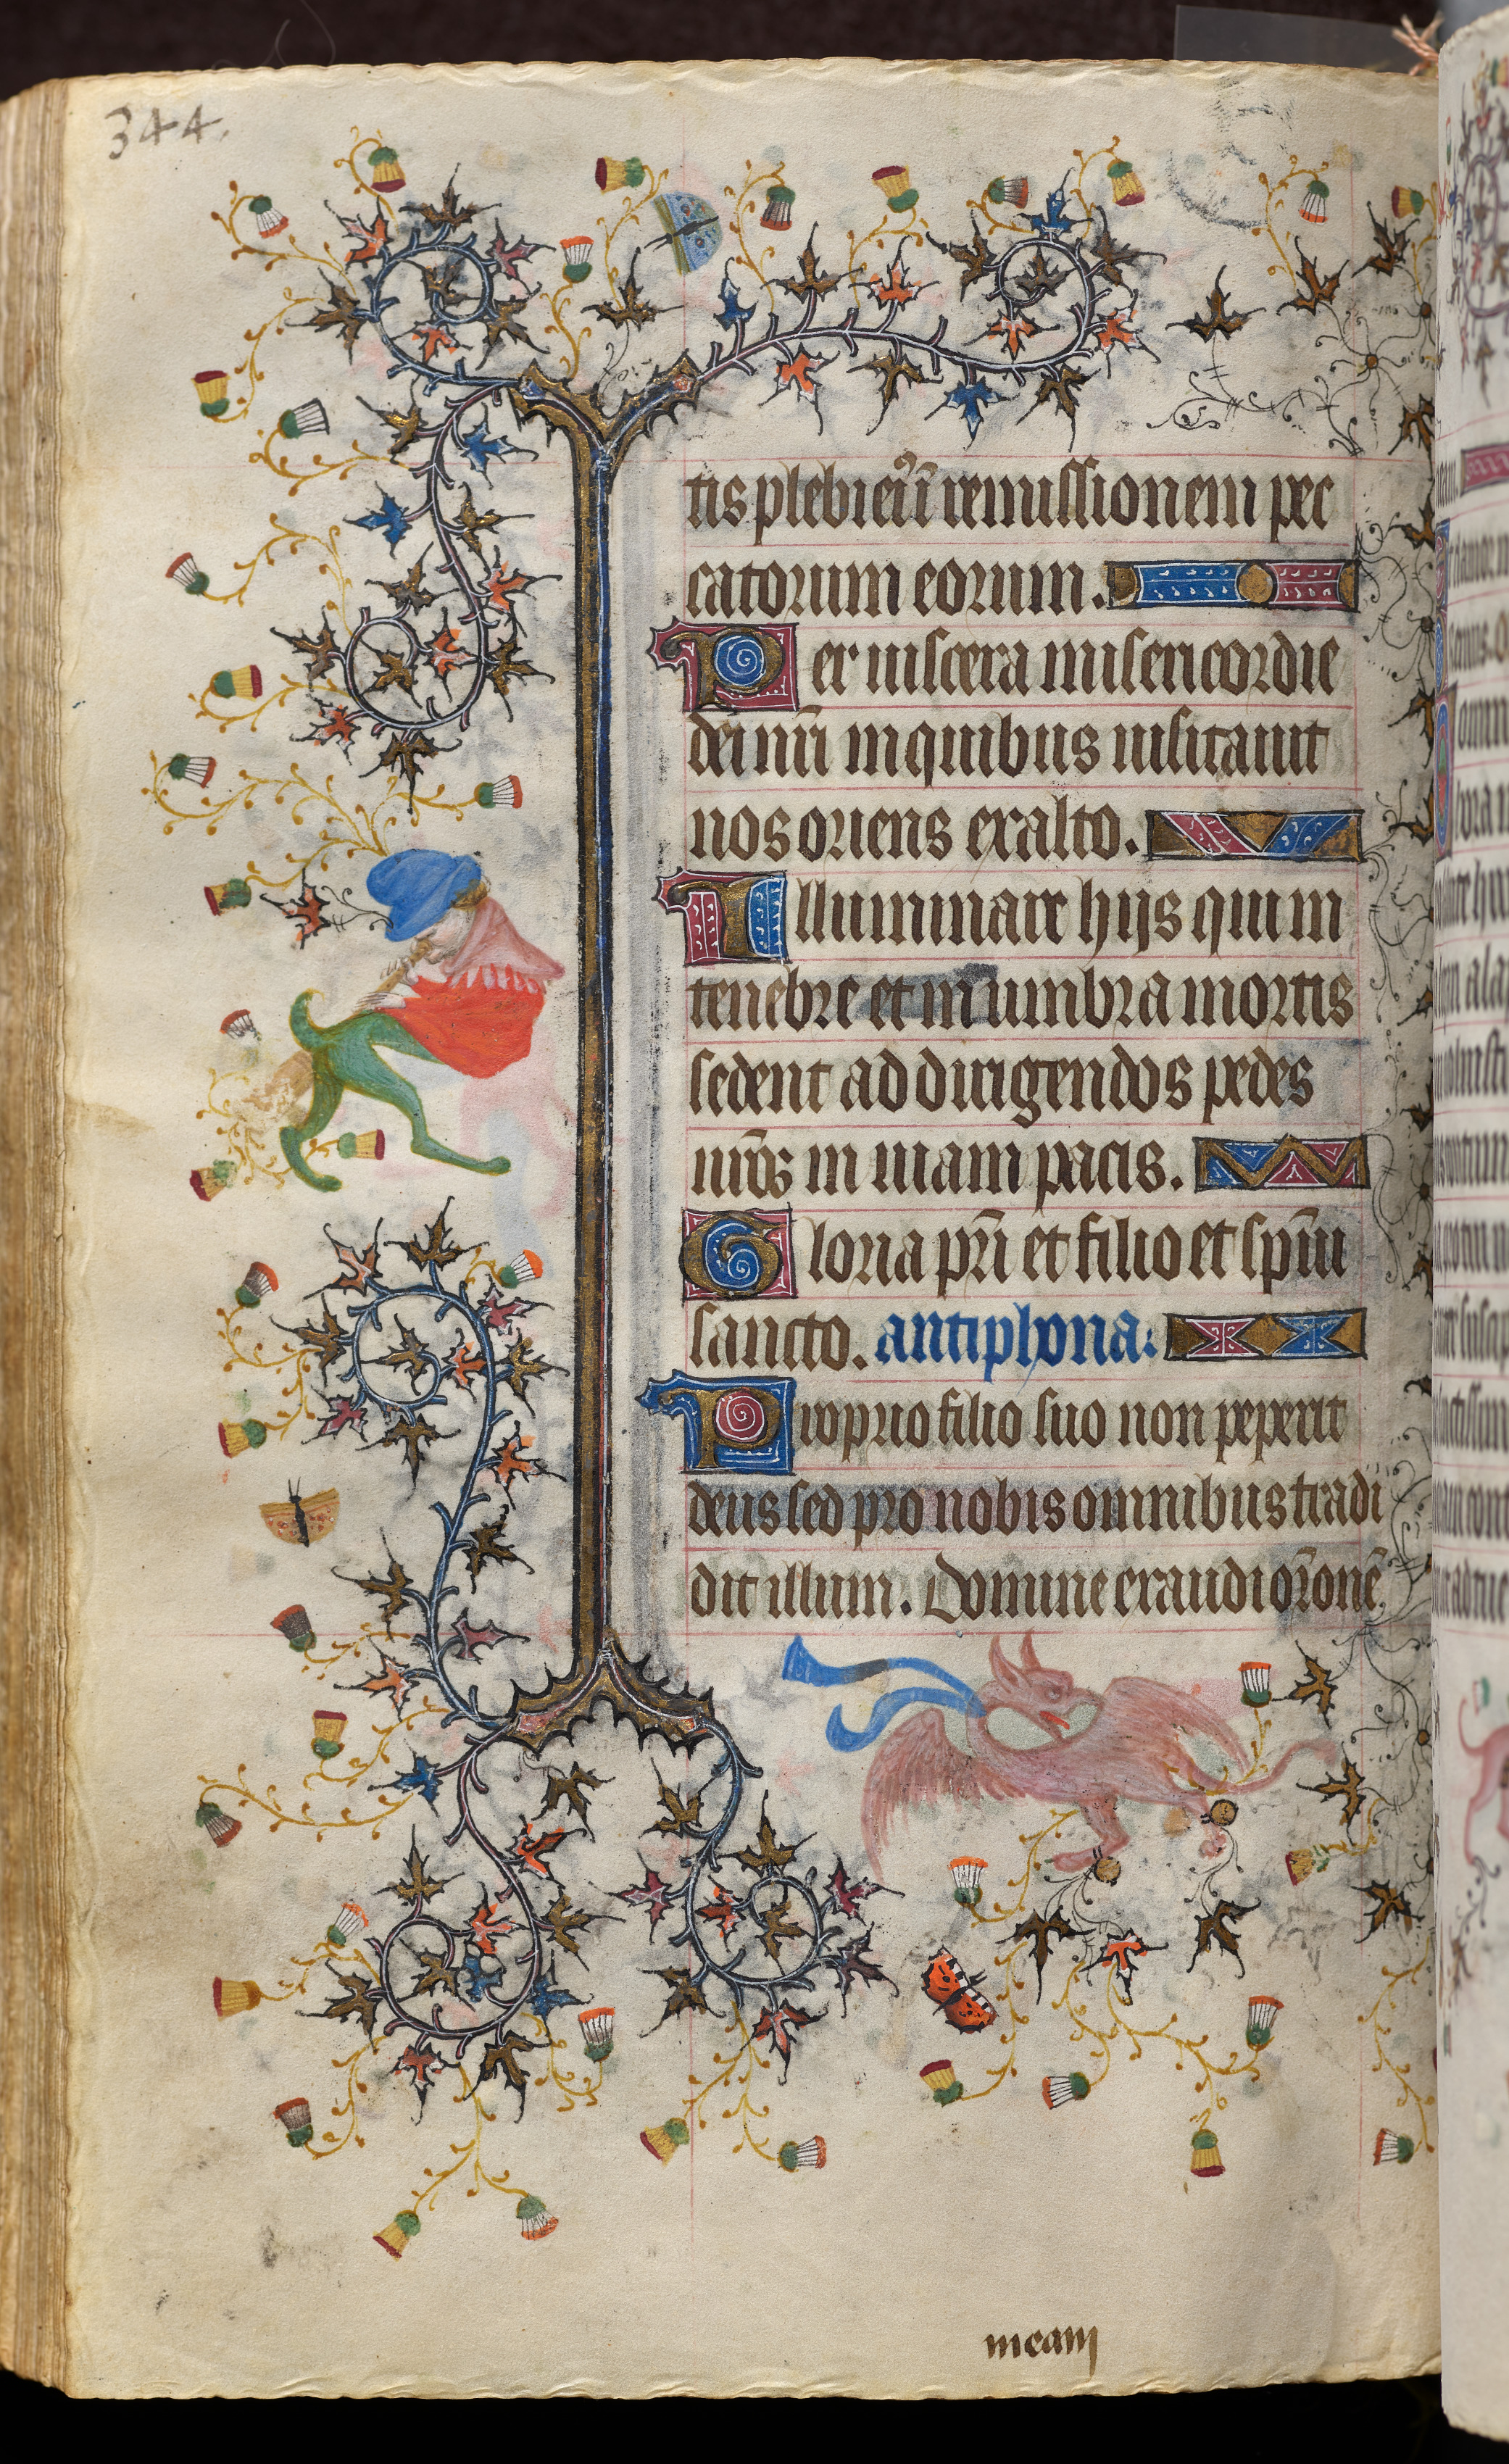 344.
tis plebi ei᷒ ī remissionem pec
catorum eorum.
Per uiscera misericordie
dei nr̄i in quibus uisitauit
nos oriens ex alto.
Illuminare hijs qui in
tenebre et in umbra mortis
sedent ad dirigendos pedes
nr̄os in uiam pacis.
Gloria pr̄i et filio et sp̄ui
sancto. antiphona:
Proprio filio suo non pepercit
deus sed pro nobis omnibus tradi
dit illum. Domine exaudi or̄onē
meam